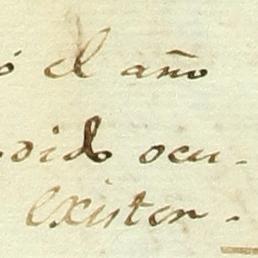 ó el año
oido ocu-
existen.